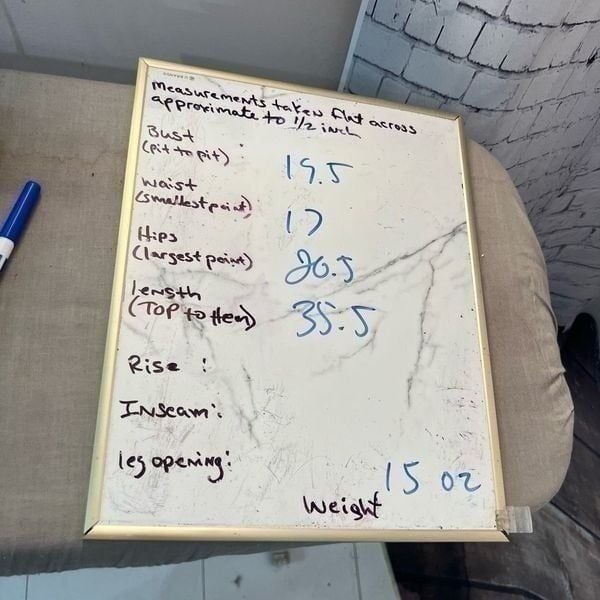 measurements taken flat across
approximate to 1/2 inch
Bust
(pit to pit) 19.5
waist
(smallest point) 17
Hips
(largest point) 20.5
length
(TOP to Hem) 35.5
Rise :
Inseam:
leg opening:
15 oz
Weight